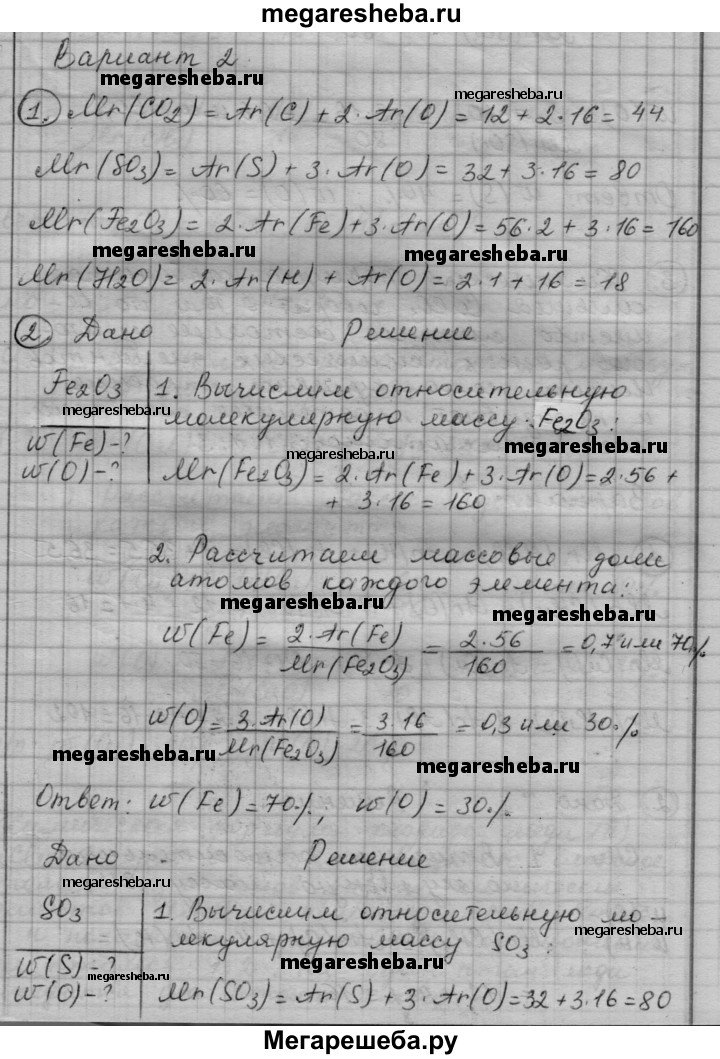 megaresheba.ru
Вариант 2
megaresheba.ru
megaresheba.ru
1. Mr(CO2) = Ar(C) + 2·Ar(O) = 12 + 2·16 = 44
Mr(SO3) = Ar(S) + 3·Ar(O) = 32 + 3·16 = 80
Mr(Fe2O3) = 2·Ar(Fe) + 3·Ar(O) = 56·2 + 3·16 = 160
megaresheba.ru
megaresheba.ru
Mr(H2O) = 2·Ar(H) + Ar(O) = 2·1 + 16 = 18
2. Дано Решение
Fe2O3 1. Вычислим относительную
megaresheba.ru
молекулярную массу Fe2O3:
w(Fe)-? megaresheba.ru
w(O)-? Mr(Fe2O3) = 2·Ar(Fe) + 3·Ar(O) = 2·56 +
megaresheba.ru
+ 3·16 = 160
2. Рассчитаем массовые доли
атомов каждого элемента:
megaresheba.ru
megaresheba.ru
w(Fe) = 2·Ar(Fe) / Mr(Fe2O3) = 2·56 / 160 = 0,7 или 70%
w(O) = 3·Ar(O) / Mr(Fe2O3) = 3·16 / 160 = 0,3 или 30%
megaresheba.ru
megaresheba.ru
Ответ: w(Fe) = 70%, w(O) = 30%
Дано Решение
megaresheba.ru
SO3 1. Вычислим относительную мо-
megaresheba.ru
лекулярную массу SO3:
w(S)-? megaresheba.ru
megaresheba.ru
w(O)-? Mr(SO3) = Ar(S) + 3·Ar(O) = 32 + 3·16 = 80
megaresheba.ru
Мегарешеба.ру